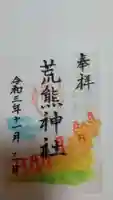 奉拝
荒熊神社
令和三年十一月